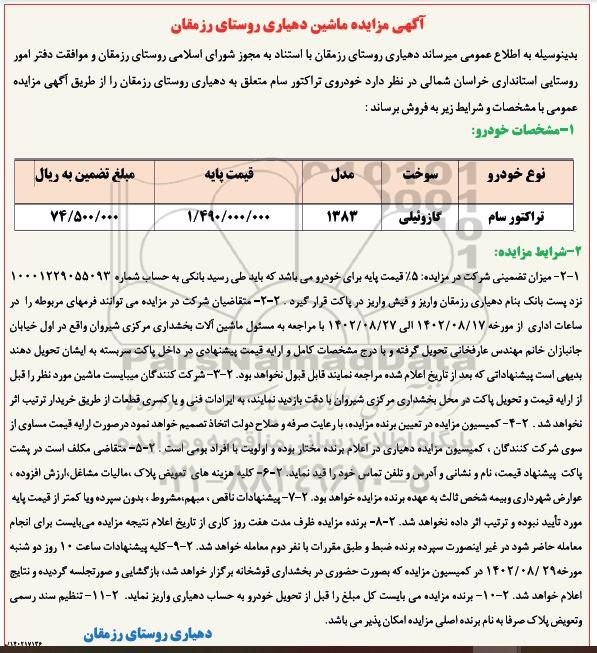 آگهی مزایده ماشین دهیاری روستای رزمقان
بدینوسیله به اطلاع عمومی میرساند دهیاری روستای رزمقان با استناد به مجوز شورای اسلامی روستای رزمقان و موافقت دفتر امور
روستایی استانداری خراسان شمالی در نظر دارد خودروی تراکتور سام متعلق به دهیاری روستای رزمقان را از طریق آگهی مزایده
عمومی با مشخصات و شرایط زیر به فروش برساند :
۱-مشخصات خودرو:
نوع خودرو سوخت مدل قیمت پایه مبلغ تضمین به ریال
تراکتور سام گازوئیلی ۱۳۸۳ ۱/۴۹۰/۰۰۰/۰۰۰ ۷۴/۵۰۰/۰۰۰
۲-شرایط مزایده:
۲-۱- میزان تضمینی شرکت در مزایده: ۵٪ قیمت پایه برای خودرو می باشد که باید طی رسید بانکی به حساب شماره ۱۰۰۰۱۲۲۹۰۵۵۰۹۳
نزد پست بانک بنام دهیاری رزمقان واریز و فیش واریز در پاکت قرار گیرد . ۲-۲- متقاضیان شرکت در مزایده می توانند فرمهای مربوطه را در
ساعات اداری از مورخه ۱۴۰۲/۰۸/۱۷ الی ۱۴۰۲/۰۸/۲۷ با مراجعه به مسئول ماشین آلات بخشداری مرکزی شیروان واقع در اول خیابان
جانبازان خانم مهندس عارفخانی تحویل گرفته و با درج مشخصات کامل و ارایه قیمت پیشنهادی در داخل پاکت سربسته به ایشان تحویل دهند
بدیهی است پیشنهاداتی که بعد از تاریخ اعلام شده مراجعه نمایند قابل قبول نخواهد بود. ۲-۳- شرکت کنندگان میبایست ماشین مورد نظر را قبل
از ارایه قیمت و تحویل پاکت در محل بخشداری مرکزی شیروان با دقت بازدید نمایند، به ایرادات فنی و یا کسری قطعات از طریق خریدار ترتیب اثر
نخواهد شد . ۲-۴- کمیسیون مزایده در تعیین برنده مزایده، با رعایت صرفه و صلاح دولت اتخاذ تصمیم خواهد نمود درصورت ارایه قیمت مساوی از
سوی شرکت کنندگان ، کمیسیون مزایده دهیاری در اعلام برنده مختار بوده و اولویت با افراد بومی است . ۲-۵- متقاضی مکلف است در پشت
پاکت پیشنهاد قیمت، نام و نشانی و آدرس و تلفن تماس خود را قید نماید. ۲-۶- کلیه هزینه های تعویض پلاک، مالیات مشاغل،ارزش افزوده ،
عوارض شهرداری وبیمه شخص ثالث به عهده برنده مزایده خواهد بود. ۲-۷- پیشنهادات ناقص ، مبهم،مشروط ، بدون سپرده ویا کمتر از قیمت پایه
مورد تأیید نبوده و ترتیب اثر داده نخواهد شد. ۲-۸- برنده مزایده ظرف مدت هفت روز کاری از تاریخ اعلام نتیجه مزایده می‌بایست برای انجام
معامله حاضر شود در غیر اینصورت سپرده برنده ضبط و طبق مقررات با نفر دوم معامله خواهد شد. ۲-۹-کلیه پیشنهادات ساعت ۱۰ روز دو شنبه
مورخه۲۹ /۱۴۰۲/۰۸ در کمیسیون مزایده که بصورت حضوری در بخشداری قوشخانه برگزار خواهد شد، بازگشایی و صورتجلسه گردیده و نتایج
اعلام خواهد شد. ۲-۱۰- برنده مزایده می بایست کل مبلغ را قبل از تحویل خودرو به حساب دهیاری واریز نماید. ۲-۱۱- تنظیم سند رسمی
وتعویض پلاک صرفا به نام برنده اصلی مزایده امکان پذیر می باشد.
دهیاری روستای رزمقان
۱۴۰۲۱۷۱۳۶/
ParsNamadData
پایگاه اطلاع رسانی مناقصه و مزایده
۰۲۱-۸۸۳۴۹۶۷۰-۵